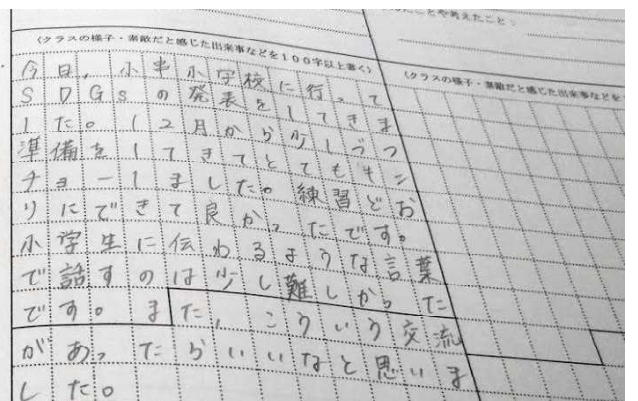 のことや考えたこと：
(クラスの様子・素敵だと感じた出来事などを100字以上書く)
今日,小半小学校に行って
SDGsの発表をしてきま
した。12月から少しづつ
準備をしてきてとてもキン
チョーしました。練習どお
りにできて良かったです。
小学生に伝わるような言葉
で話すのは少し難しかった
です。また,こういう交流
があったらいいなと思いま
した。
(クラスの様子・素敵だと感じた出来事などを